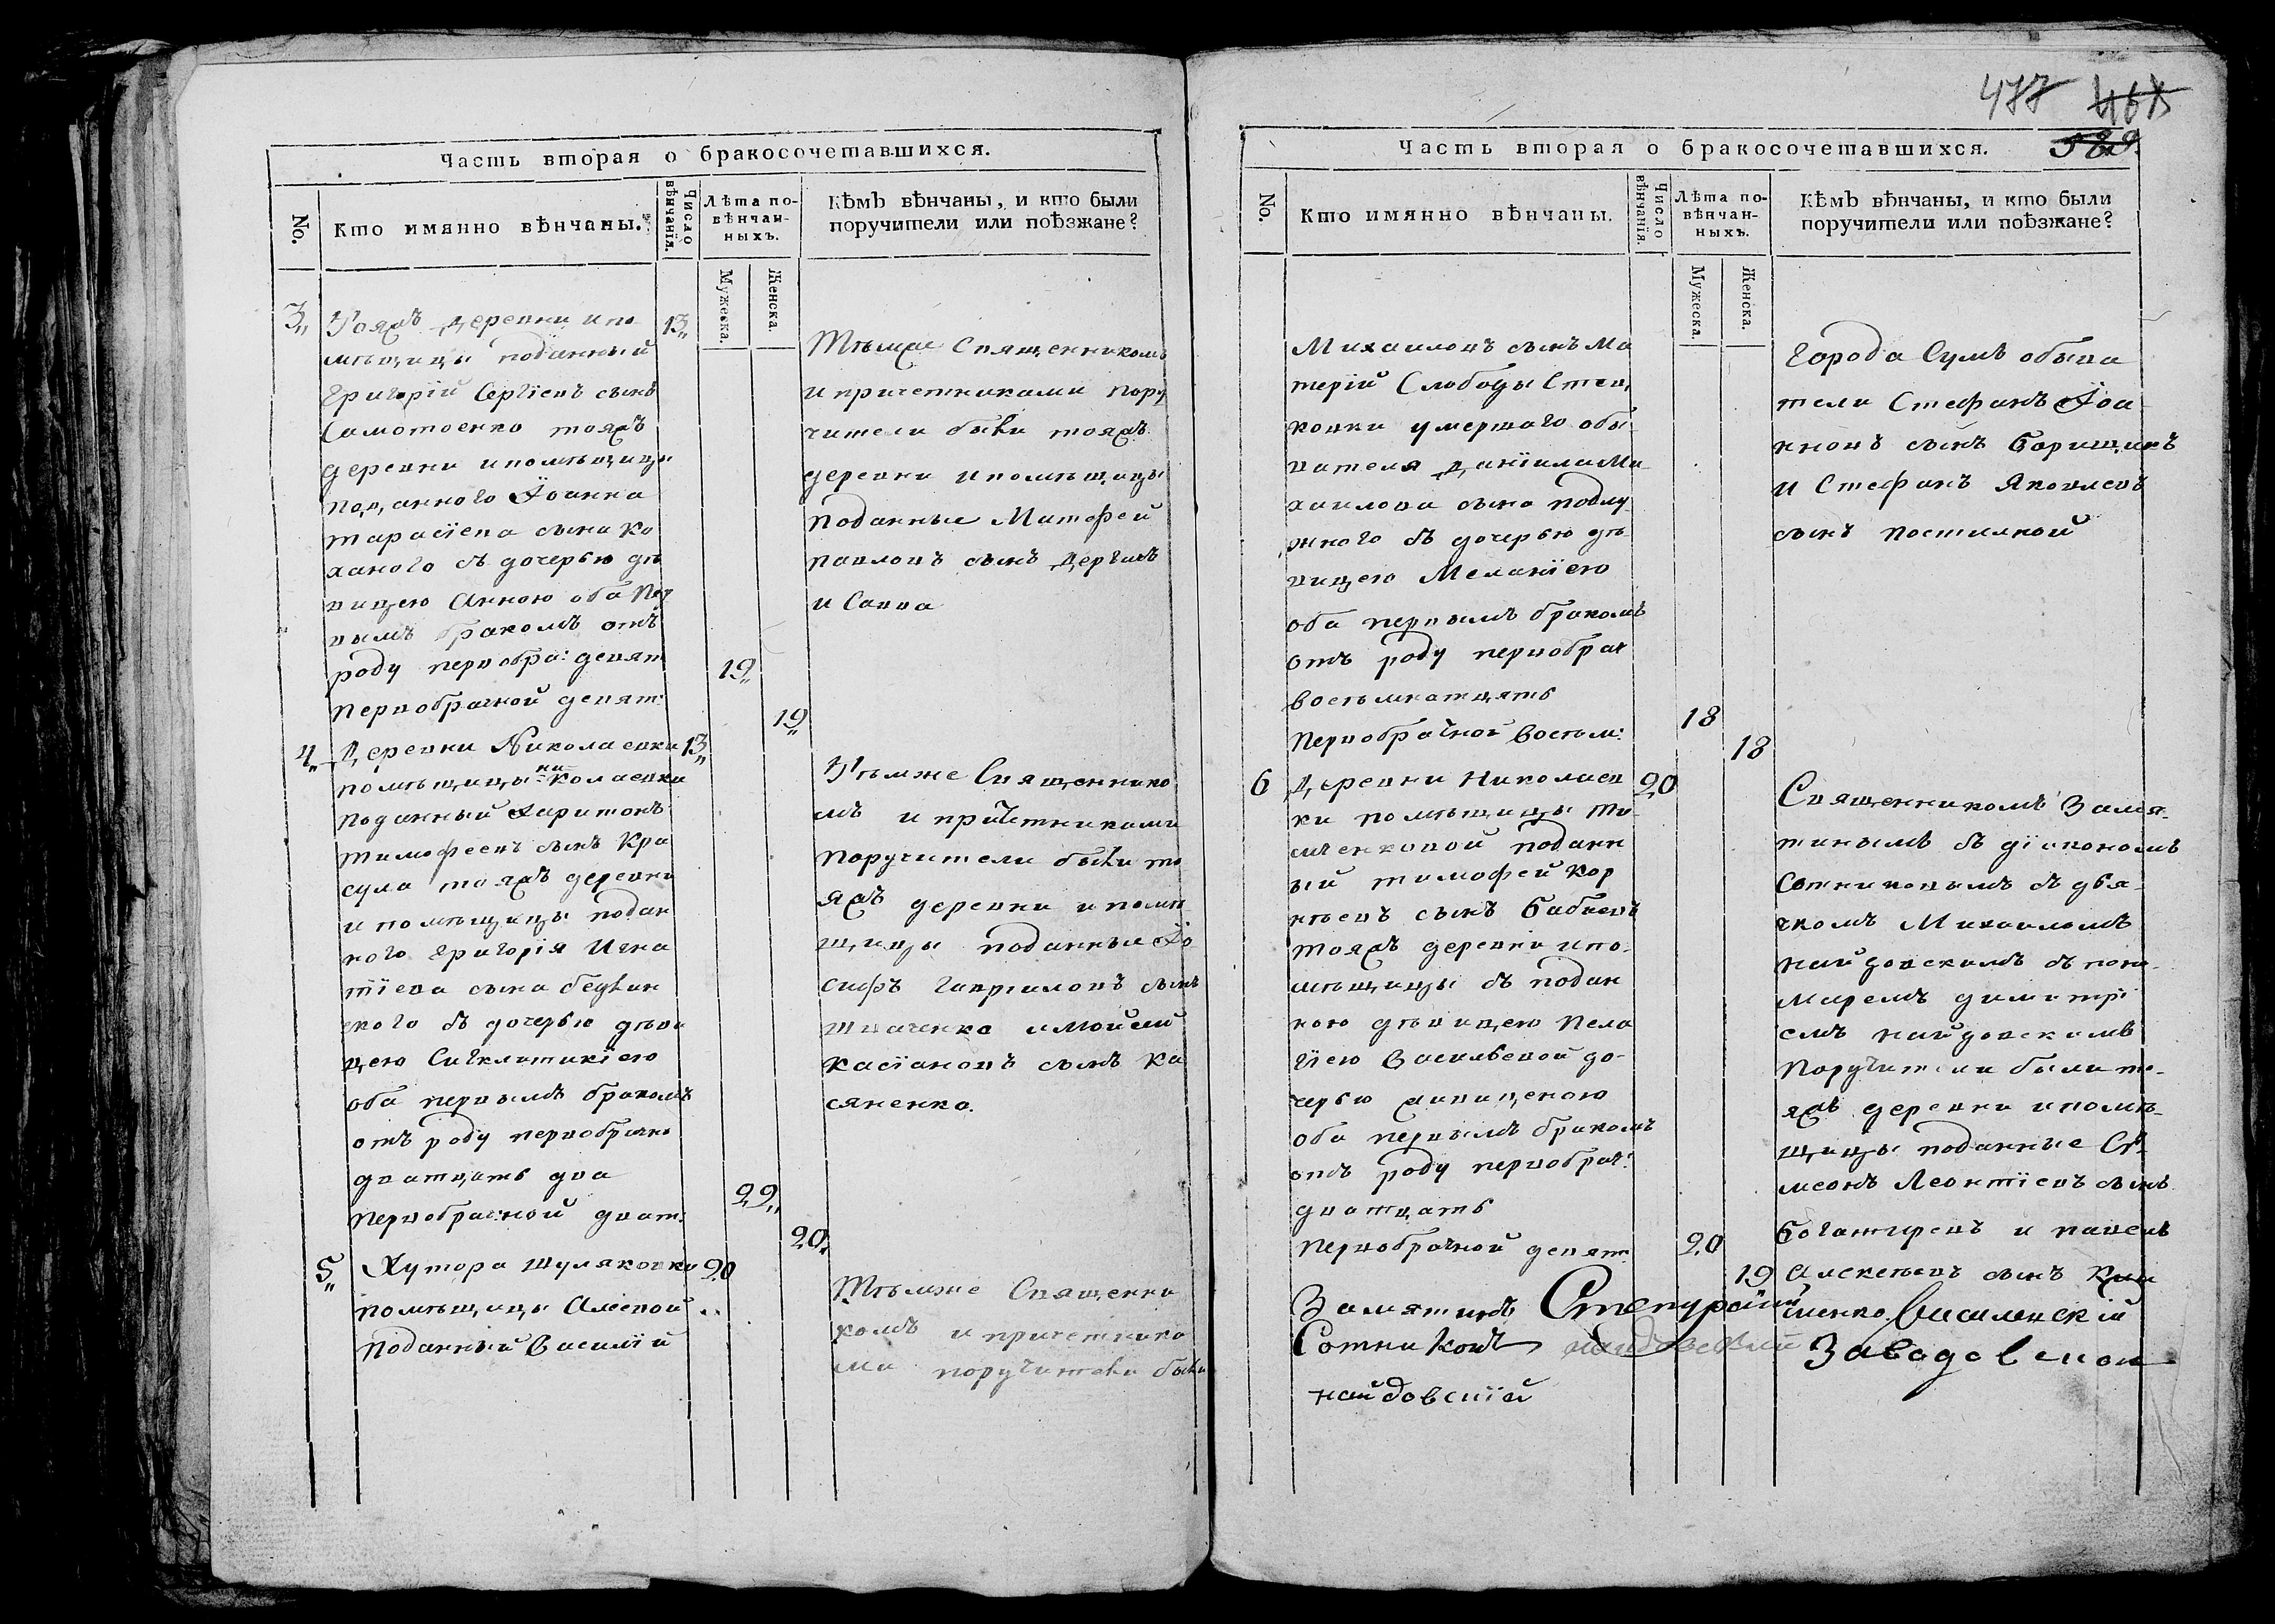 Часть вторая о бракосочетавшихся.
No.
Кто имянно вѣнчаны.
Число вѣнчанія.
Лѣта повѣнчанныхъ.
Мужеска.
Женска.
Кѣмъ вѣнчаны, и кто были
поручители или поѣзжане?
3„
Тояжъ деревни и по
мѣщицы поданный
Григорій Сергіевъ сынъ
Самотоенко тояжъ
деревни и помѣщицы
подданного Іоанна
тарасіева сына Ко
ханого съ дочерью дѣ
вицею Анною оба пер
вымъ бракомъ отъ
роду первобра: девят
первобрачной девят:
13„
19„
19„
Тѣмже Священникомъ
и причетниками пору
чители были тояжъ
деревни и помѣщицы
поданные Матфей
павловъ сынъ Дергачъ
и Савва
4„
Деревни Николаевки 13„
помѣщицы николаевки
поданный Харитонъ
тимофеевъ сынъ Кра
сула тояжъ деревни
и помѣщицы подан
ного Григорія Игна
тіева сына
ского съ дочерью дѣви
цею Сигклитикіею
оба первымъ бракомъ
отъ роду первобрачно
дватцать два
первобрачной дват:
22„
20„
Тѣмже Священнико
мъ и причетниками
поручители были то
яжъ деревни и помѣ
щицы поданныи Іо
сифъ гавріиловъ сынъ
Шваченко и Мойсей
Касіановъ сынъ Ка
сяненко.
5„
Хутора Шуляковки 20
помѣщицы Алеевой
поданный Василій
Тѣмже Священни
комъ и причетника
ми поручители были
477 467
529.
Часть вторая о бракосочетавшихся.
No.
Кто имянно вѣнчаны.
Число вѣнчанія.
Лѣта повѣнчанныхъ.
Мужеска.
Женска.
Кѣмъ вѣнчаны, и кто были
поручители или поѣзжане?
Михаиловъ сынъ Ма
терій Слободы Степ,
ковки умершаго обы
вателя Даніила Ми
хаилова сына подлу
жного съ дочерью дѣ
вицею Меланіею
оба первымъ бракомъ
отъ роду первобрач
восемнатцять
первобрачной восем:
18
18
Города Сумъ обыва
тели Стефанъ Іоа
нновъ сынъ Борищикъ
и Стефанъ Яковлевъ
сынъ постилной
6
Деревни Николаев 20
ки помѣщицы Ти
мченковой поданн
ый тимофей Кор
нѣевъ сынъ Бабиевъ
тояжъ деревни и по-
мѣщицы съ подан
ною дѣвицею Пела
гіею Васильевой до-
черью
оба первымъ бракомъ
отъ роду первобрач:
дватцать
первобрачной девят
20
19
Священникомъ Замя-
тинымъ съ діакономъ
Сотниковымъ съ дья-
чкомъ Михаиломъ
Найдовскимъ съ поно-
маремъ димитрі
емъ найдовскимъ
Поручители были то-
яжъ деревни и помѣ-
щицы поданные Си
меонъ Леонтіевъ сынъ
Богатиревъ и павелъ
Алексѣевъ сынъ
Замятинъ
Сотниковъ
найдовскій